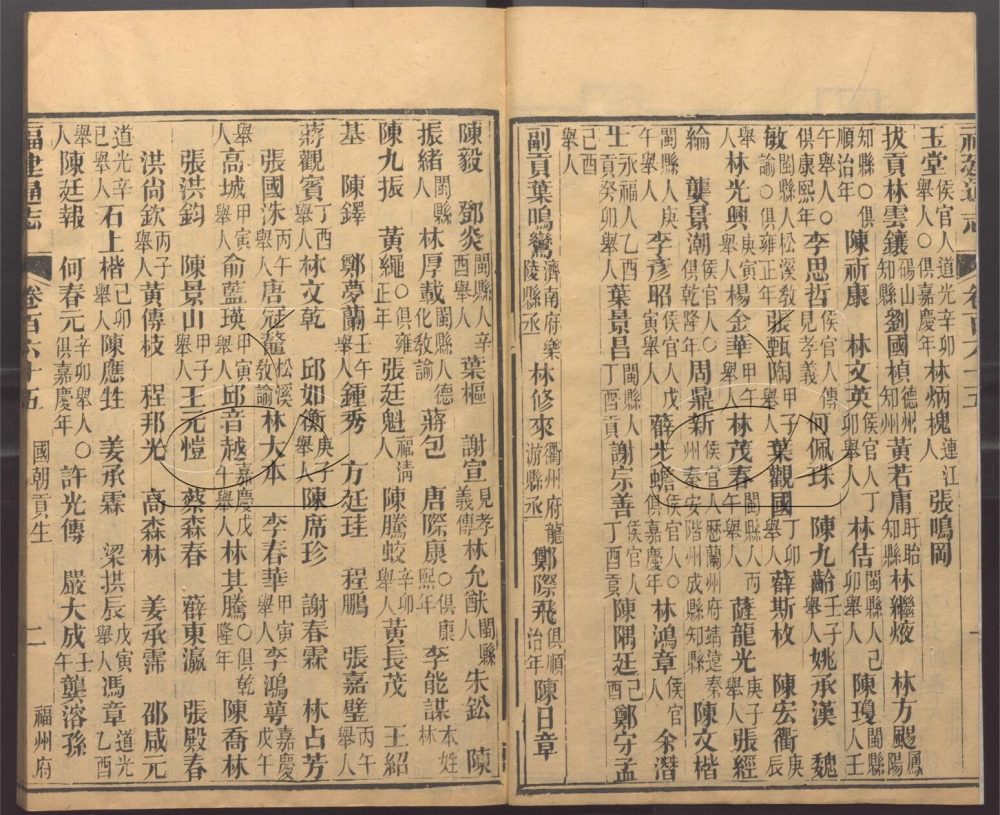 福建通志 卷百六十五 一
玉堂侯官人道光辛卯舉人〇俱嘉慶年林炳槐連江人張鳴岡
拔貢林雲鑲碭山縣知縣劉國楨德州知州黃若庸盱眙知縣林繼燉 林方颺鳳陽
知縣〇俱順治年陳祈康 林文英侯官人丁卯舉人林佶閩縣人己卯舉人陳瓊閩縣人壬
午舉人〇俱康熙年李思哲侯官人傳見孝義何佩珠 陳九齡壬子舉人姚承漢 魏
敏閩縣人松溪教諭〇俱雍正年張甄陶甲子舉人葉觀國丁卯舉人薛斯枚 陳宏衢庚辰
舉人林光興庚寅舉人楊金華甲午舉人林茂春閩縣人丙午舉人薩龍光庚子舉人張經
綸 龔景潮侯官人〇俱乾隆年周鼎新侯官人歷蘭州府靖遠秦州秦安階州成縣知縣陳文楷
閩縣人庚午舉人李彥昭侯官人庚寅舉人薛步蟾侯官人〇俱嘉慶年林鴻章侯官人余潛
士永福人乙酉貢癸卯舉人葉景昌閩縣人丁酉貢謝宗善侯官人丁酉貢陳隅廷己酉鄭守孟
己酉舉人
副貢葉鳴鸞濟南府樂陵縣丞林修來衢州府龍游縣丞鄭際飛俱順治年陳日章
陳毅 鄧炎閩縣人辛酉舉人葉樞 謝宣見孝義傳林允猷閩縣人朱鈆 陳
振緒閩縣人林厚載閩縣人德化教諭蔣包 唐際康〇俱康熙年李能謀本姓林
陳九振 黃繩〇俱雍正年張廷魁福清人陳騰蛟辛卯舉人黃長茂 王紹
基 陳鐸 鄭夢蘭壬午舉人鍾秀 方廷珪 程鵬 張嘉璧丙午舉人
蔣觀賓丁酉舉人林文乾 邱如衡庚子舉人陳席珍 謝春霖 林占芳
張國洙丙午舉人唐冠鼇松溪教諭林大本 李春華甲寅舉人李鴻蕚嘉慶戊午
舉人高城甲寅舉人俞藍瑛甲寅舉人邱音越嘉慶戊午舉人林其騰〇俱乾隆年陳喬林
張洪鈞 陳景山甲子舉人王元愷 蔡森春 薛東瀛 張殿春
洪尚欽丙子舉人黃傳枝 程邦光 高森林 姜承霈 邵咸元
道光辛巳舉人石上楷己卯舉人陳應甡 姜承霖 梁拱辰戊寅舉人馮章道光乙酉
舉人陳廷報 何春元辛卯舉人〇俱嘉慶年許光傳 嚴大成壬午龔溶孫
福建通志 卷百六十五 國朝貢生 二 福州府